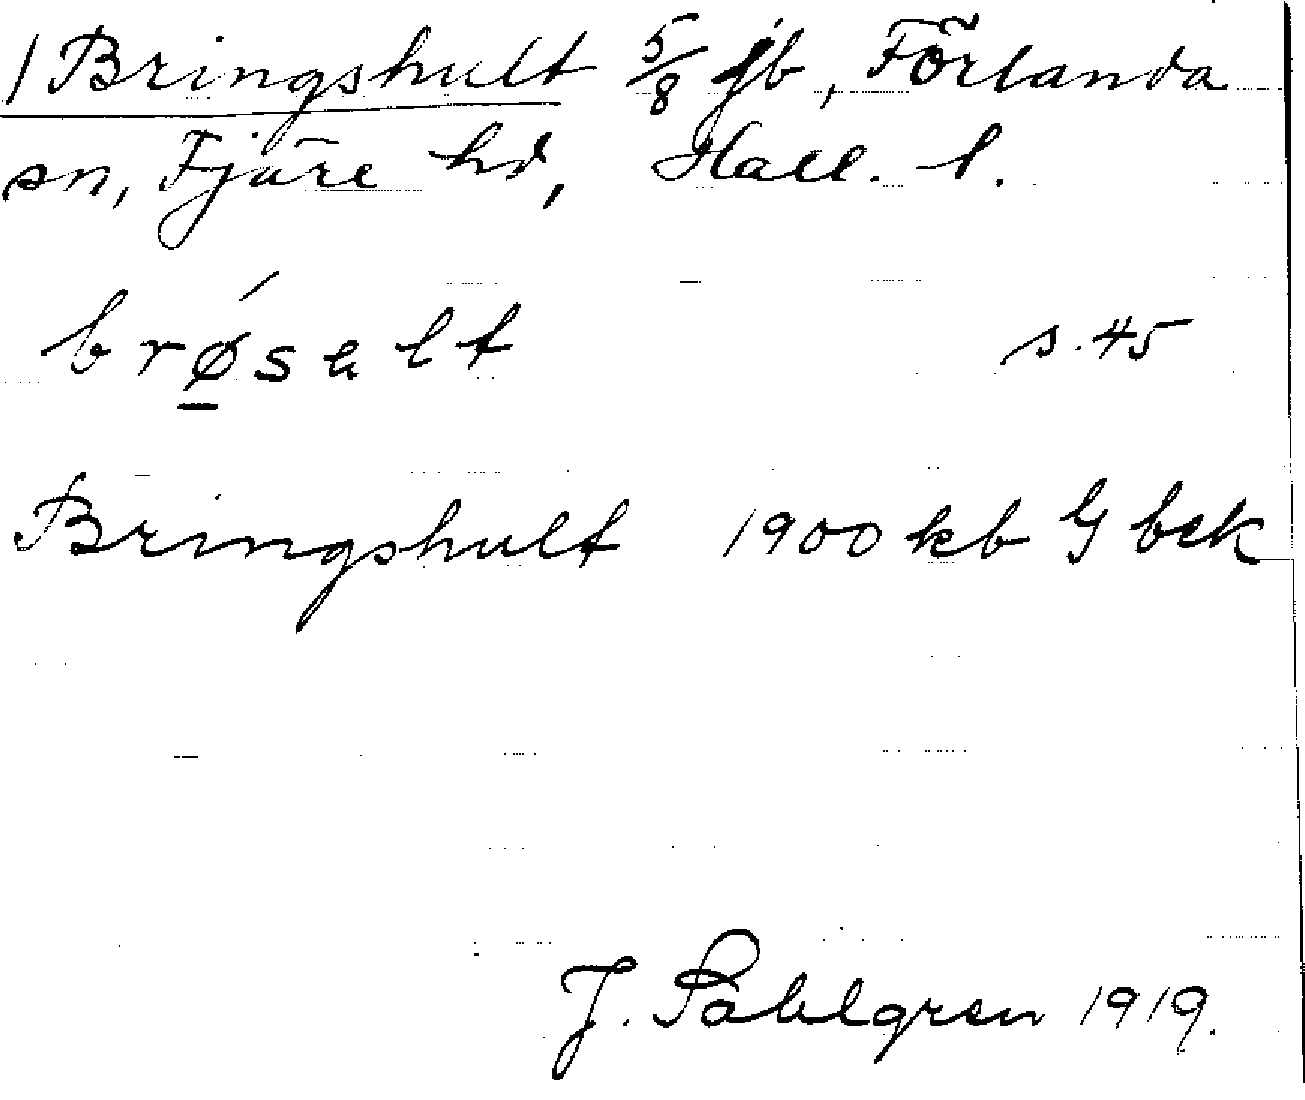 1 Bringshult 5/8 jb, Förlanda
sn, Fjäre hd, Hall. l.
brǿsalt s. 45
Bringshult 1900 kb G bek
J. Sahlgren 1919.